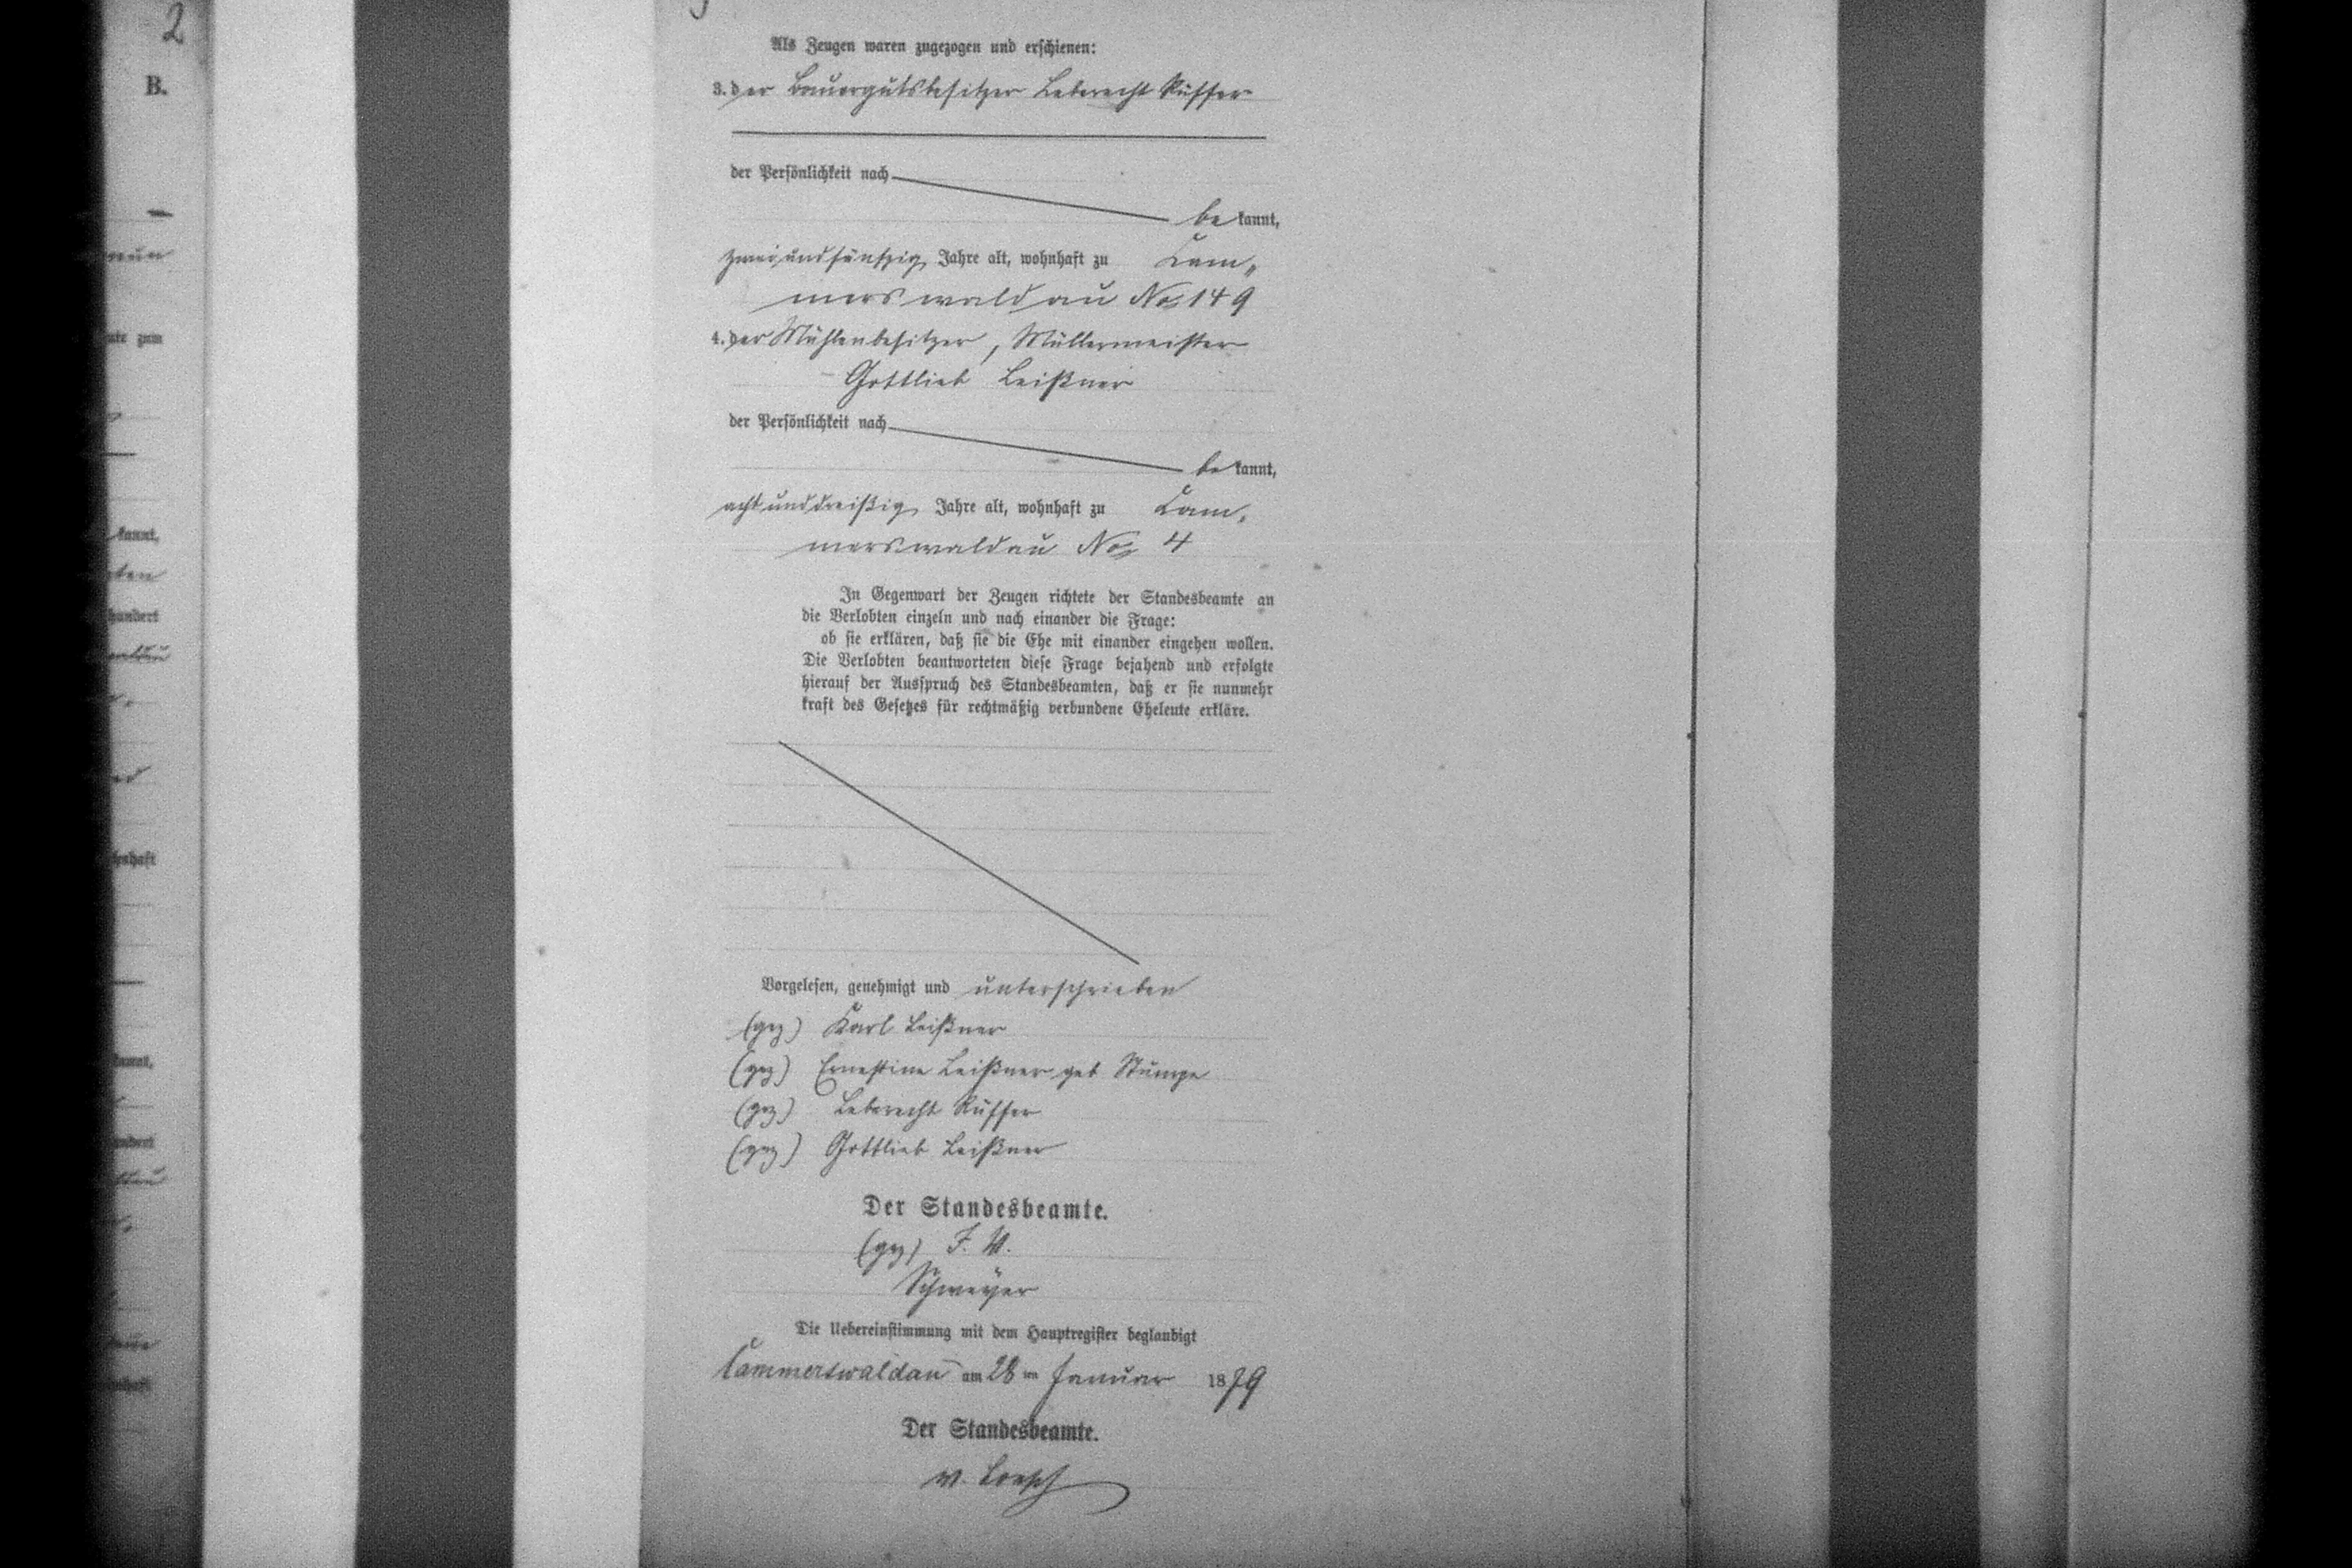 2
B.
kannt,
hundert
kannt,
Als Zeugen waren zugezogen und erschienen:
3. der Bauergutsbesitzer Leberecht Rüffer
der Persönlichkeit nach
be kannt,
zweiundfünfzig Jahre alt, wohnhaft zu Kam„
merswaldau No 149
4. der Mühlenbesitzer, Müllermeister
Gottlieb Leißner
der Persönlichkeit nach
be kannt,
achtunddreißig Jahre alt, wohnhaft zu Kam„
merswaldau No 4
In Gegenwart der Zeugen richtete der Standesbeamte an
die Verlobten einzeln und nach einander die Frage:
ob sie erklären, daß sie die Ehe mit einander eingehen wollen.
Die Verlobten beantworteten diese Frage bejahend und erfolgte
hierauf der Ausspruch des Standesbeamten, daß er sie nunmehr
kraft des Gesetzes für rechtmäßig verbundene Eheleute erkläre.
Vorgelesen, genehmigt und unterschrieben
(gez) Karl Leißner
(gez) Ernestine Leißner geb Stumpe
(gez) Leberecht Rüffer
(gez) Gottlieb Leißner
Der Standesbeamte.
(gez) F. W.
Schweyer
Die Uebereinstimmung mit dem Hauptregister beglaubigt
Cammerswaldau am 28 ten Januar 1879
Der Standesbeamte.
v. Loesch